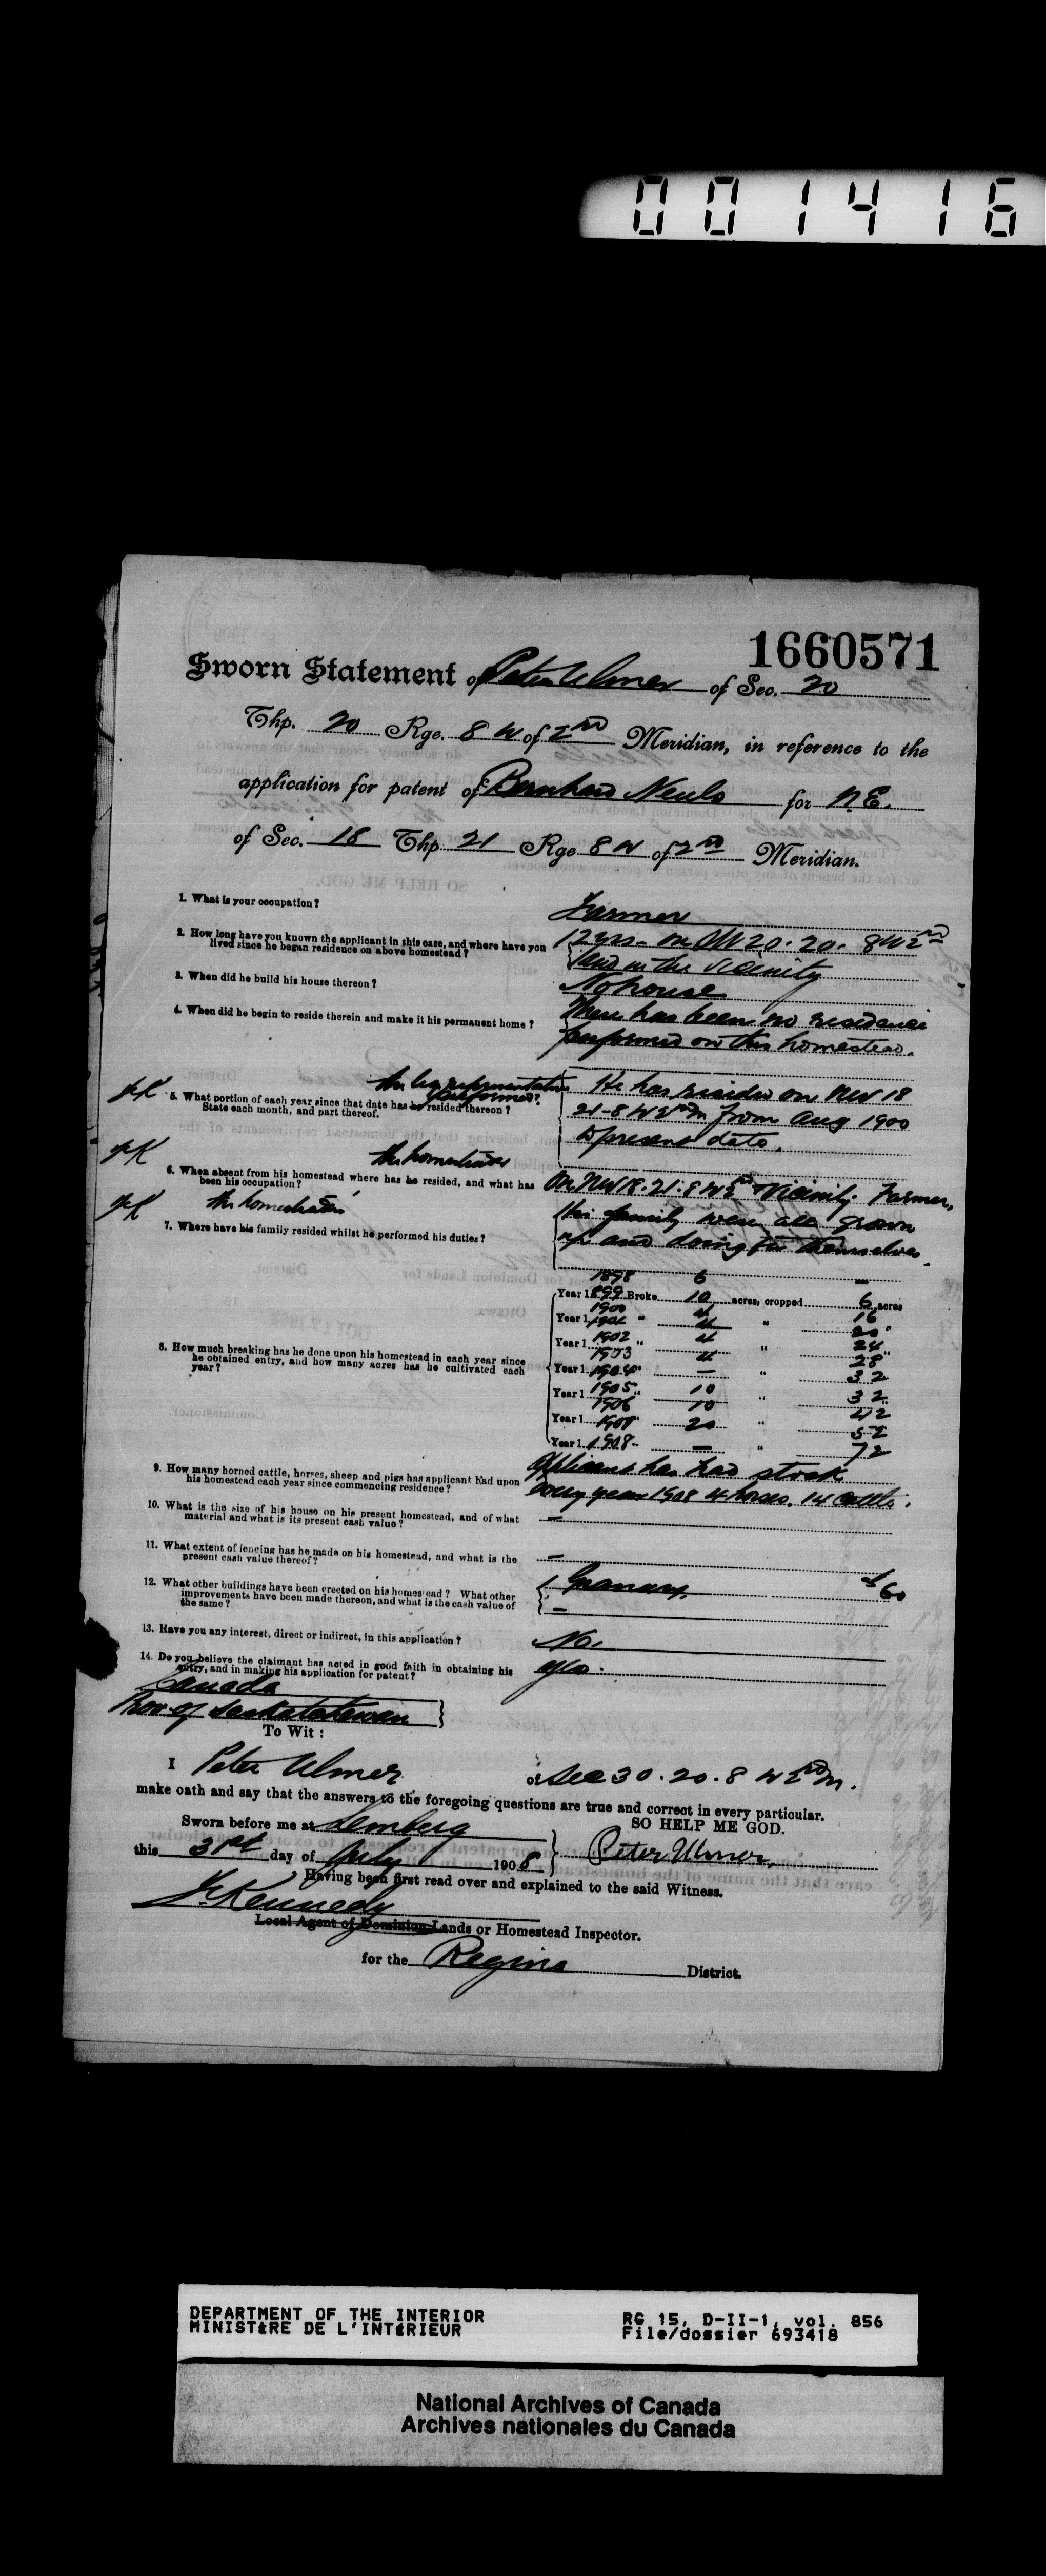 001416
1660571
Sworn Statement of Peter Ulmer of Sec. 20
Thp. 20 Rge. 8 W of 2nd Meridian, in reference to the
application for patent of Bernhard Neuls for N.E.
of Sec. 18 Thp 21 Rge 8 W of 2nd Meridian.
1. What is your occupation? Farmer
2. How long have you known the applicant in this case, and where have you 12 yrs - on 20. 20. 8 W 2nd
lived since he began residence on above homestead? and in the vicinity
3. When did he build his house thereon? No house
4. When did he begin to reside therein and make it his permanent home? There has been no residence
performed on this homestead.
the leg representative He has resided on NW 18
performed?
JK 5. What portion of each year since that date has he resided thereon? 21-8 W 2nd M from Aug 1900
State each month, and part thereof. to present date.
JK the homesteader
6. When absent from his homestead where has he resided, and what has On NW 18. 21. 8 W 2nd Vicinity. Farmer,
been his occupation?
JK the homesteader His family were all grown
7. Where have his family resided whilst he performed his duties? up and doing for themselves.
1898 6 —
Year 1899 Broke 10 acres, cropped 6 acres
1900 4 16
Year 1901 " 4 " 20 "
1902 4 24
Year 1 1903 4 " 28 "
8. How much breaking has he done upon his homestead in each year since
he obtained entry, and how many acres has he cultivated each
year?
Year 1 1904 " — " 32
Year 1 1905 " 10 " 32
1906 10 42
Year 1 1907 20 " 52
Year 1 1908 - — " 72
9. How many horned cattle, horses, sheep and pigs has applicant had upon Applicant has had stock
his homestead each year since commencing residence? every year 1908 4 horses. 14 cattle.
10. What is the size of his house on his present homestead, and of what —
material and what is its present cash value?
11. What extent of fencing has he made on his homestead, and what is the —
present cash value thereof?
12. What other buildings have been erected on his homestead? What other Granary. $60
improvements have been made thereon, and what is the cash value of —
the same?
13. Have you any interest, direct or indirect, in this application? No.
14. Do you believe the claimant has acted in good faith in obtaining his yes.
entry, and in making his application for patent?
Canada
Prov of Saskatatewan }
To Wit:
I Peter Ulmer of Sec 30. 20. 8 W 2nd M.
make oath and say that the answers to the foregoing questions are true and correct in every particular.
SO HELP ME GOD.
Sworn before me at Lemberg
this 31st day of July 1908 } Peter Ulmer,
Having been first read over and explained to the said Witness.
JKennedy
Local Agent of Dominion Lands or Homestead Inspector.
for the Regina District.
DEPARTMENT OF THE INTERIOR RG 15, D-II-1, vol. 856
MINISTÈRE DE L'INTÉRIEUR File/dossier 693418
National Archives of Canada
Archives nationales du Canada